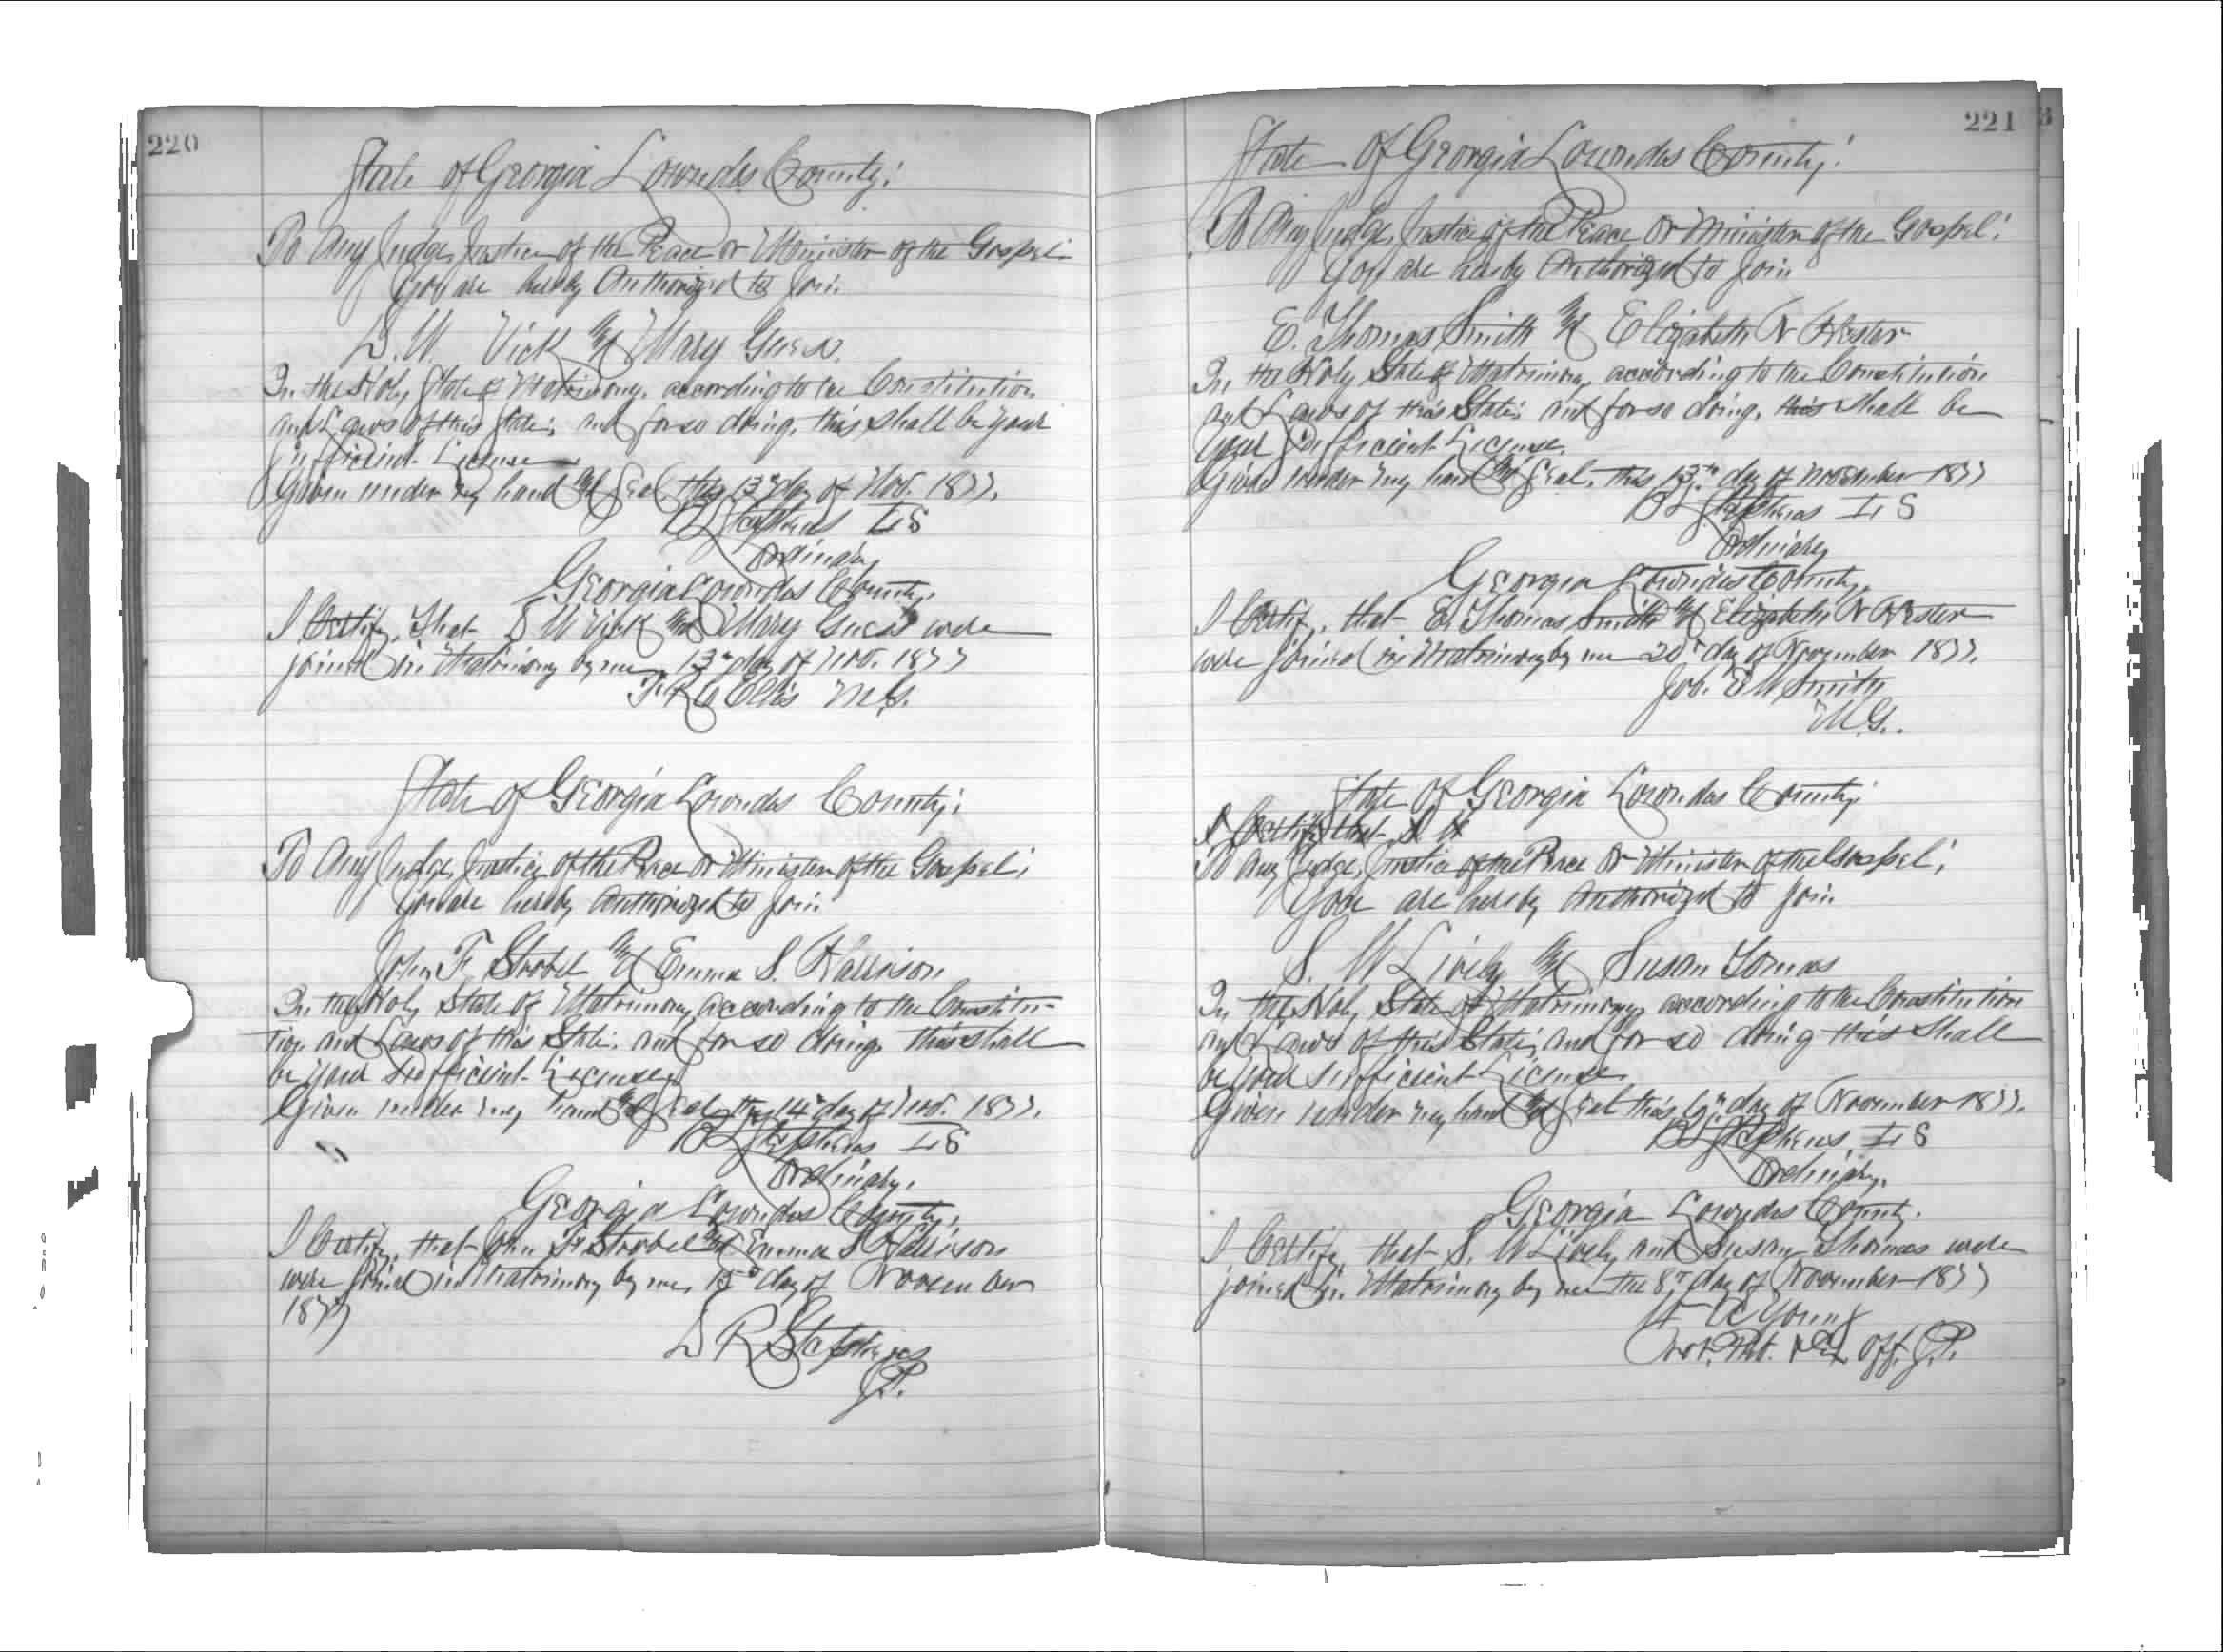 220
State of Georgia Lowndes County;
To Any Judge, Justice of the Peace or Minister of the Gospel:
You are hereby Authorized to Join
D. W. Vick and Mary
In the Holy State of Matrimony, according to the Constitution
and Laws of this State; and for so doing, this shall be your
sufficient License
Given under my hand and Seal, this 13th day of Nov. 1877.
Stephens L S
Ordinary
Georgia Lowndes County.
I Certify, That D W Vick and Mary were
joined in Matrimony by me 13th day of Nov. 1877
Ellis M.G.
State of Georgia Lowndes County;
To Any Judge, Justice of the Peace or Minister of the Gospel;
You are hereby Authorized to Join
John F. Strobel and Emma S. Harrison
In the Holy State of Matrimony according to the Constitu-
tion and Laws of this State; and for so doing, this shall
be your Sufficient License,
Given under my hand and Seal, this 14th day of Nov. 1877.
Stephens L S
Ordinary.
Georgia Lowndes County.
I Certify, that John F. Strobel and Emma S Harrison
were joined in Matrimony by me, 15th day of November
1877
J.P.
221
State of Georgia Lowndes County;
To Any Judge, Justice of the Peace or Minister of the Gospel;
You are hereby Authorized to Join
E. Thomas Smith and Elizabeth N Hester
In the Holy State of Matrimony, according to the Constitution
and Laws of this State; and for so doing, this shall be
your Sufficient License.
Given under my hand and Seal, this 13th day of November 1877
Stephens L S
Ordinary
Georgia Lowndes County,
I Certify, that E. Thomas Smith and Elizabeth N Hester
were joined in Matrimony by me 20th day of November 1877.
Job. E W Smith
M.G.
State of Georgia Lowndes County;
I Certify that S. W
To Any Judge, Justice of the Peace or Minister of the Gospel;
You are hereby Authorized to Join
S. W Lively and Susan Tomas
In the Holy State of Matrimony, according to the Constitution
and Laws of this State; and for so doing this shall
be your sufficient License
Given under my hand and Seal this 6th day of November 1877.
Stephens L S
Ordinary.
Georgia Lowndes County.
I Certify, that S. W Lively and Susan Thomas were
joined in Matrimony by me the 8th day of November 1877
Young
Not. Pub. & Ex Off. J.P.